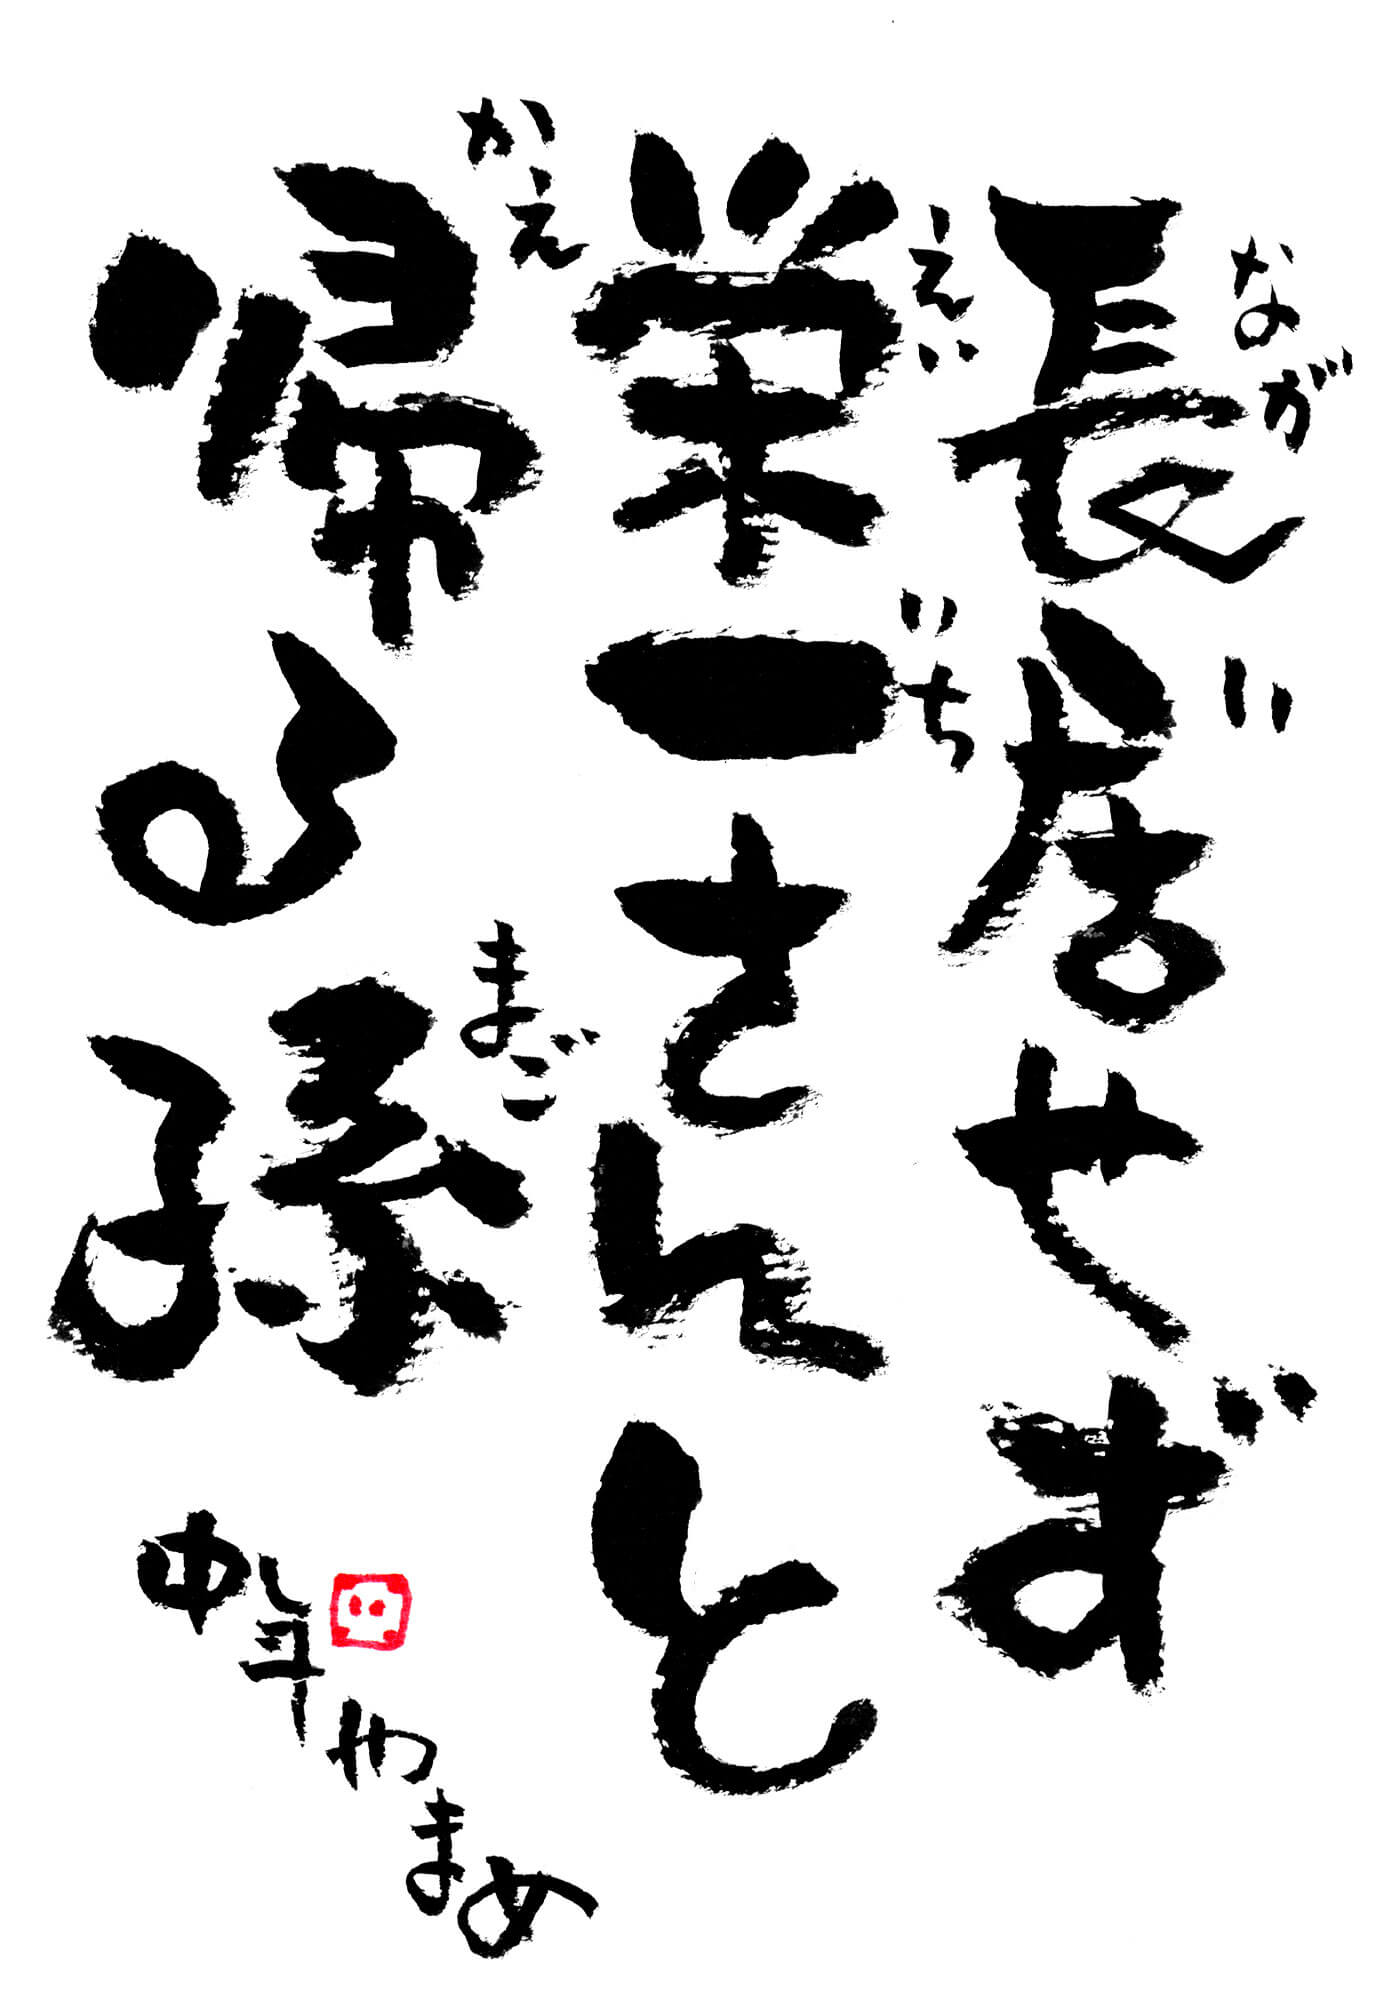 長居せず
ながい
栄一さんと
えいいち
帰る孫
かえ
まご
中年やまめ